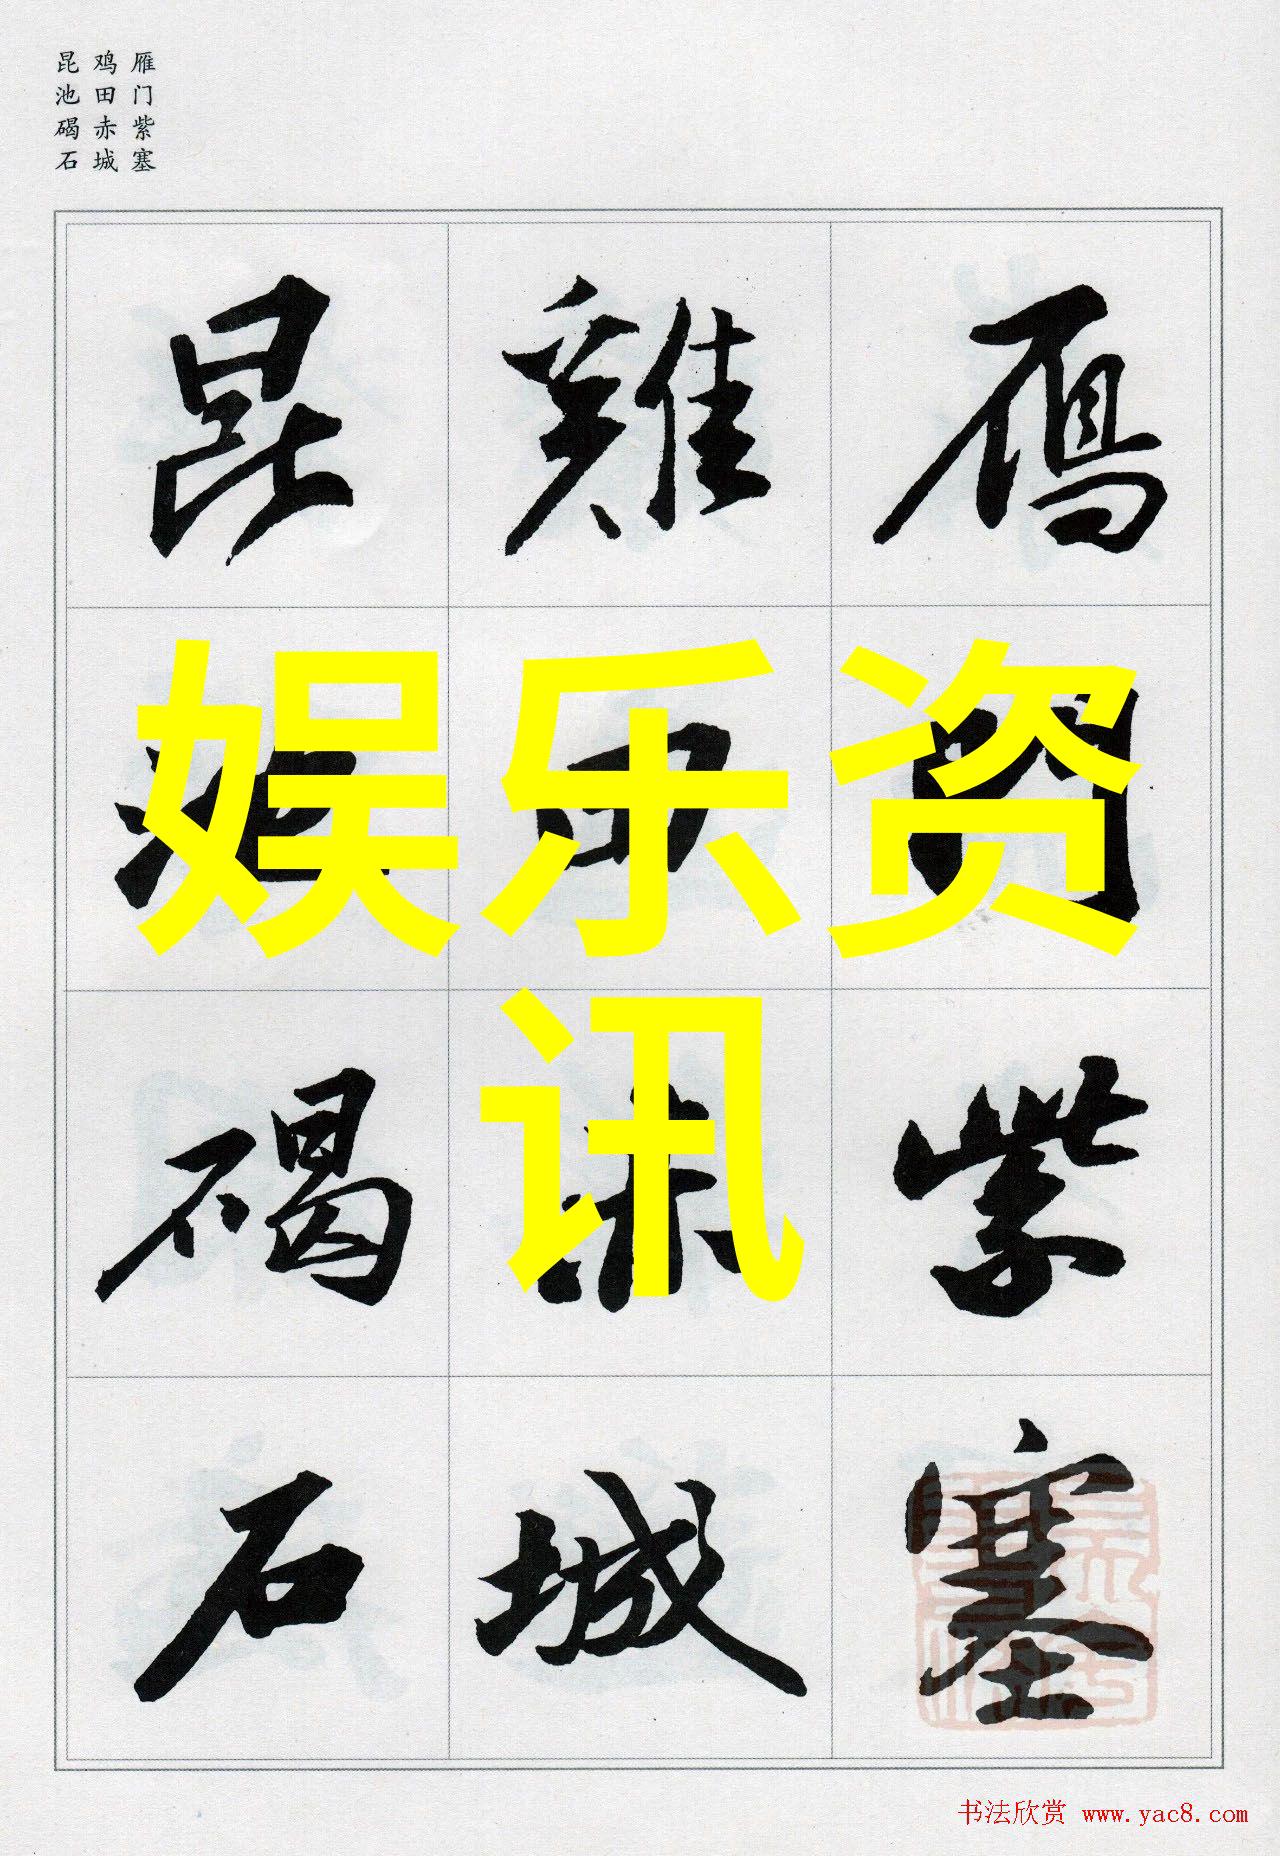 雁门紫塞
鸡田赤城
昆池碣石
鴈門紫塞
雞田赤城
昆池碣石
娱乐资
讯
书法欣赏 www.yac8.com